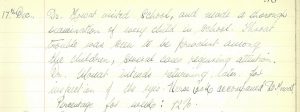 17th Dec. Dr. Mowat visited School, and made a thorough
examination of every child in School. Throat
trouble was seen to be prevalent among
the children, several cases requiring attention.
Dr. Mowat intends returning later for
inspection of the eyes. Dr. Mowat
Percentage for week: 92%.